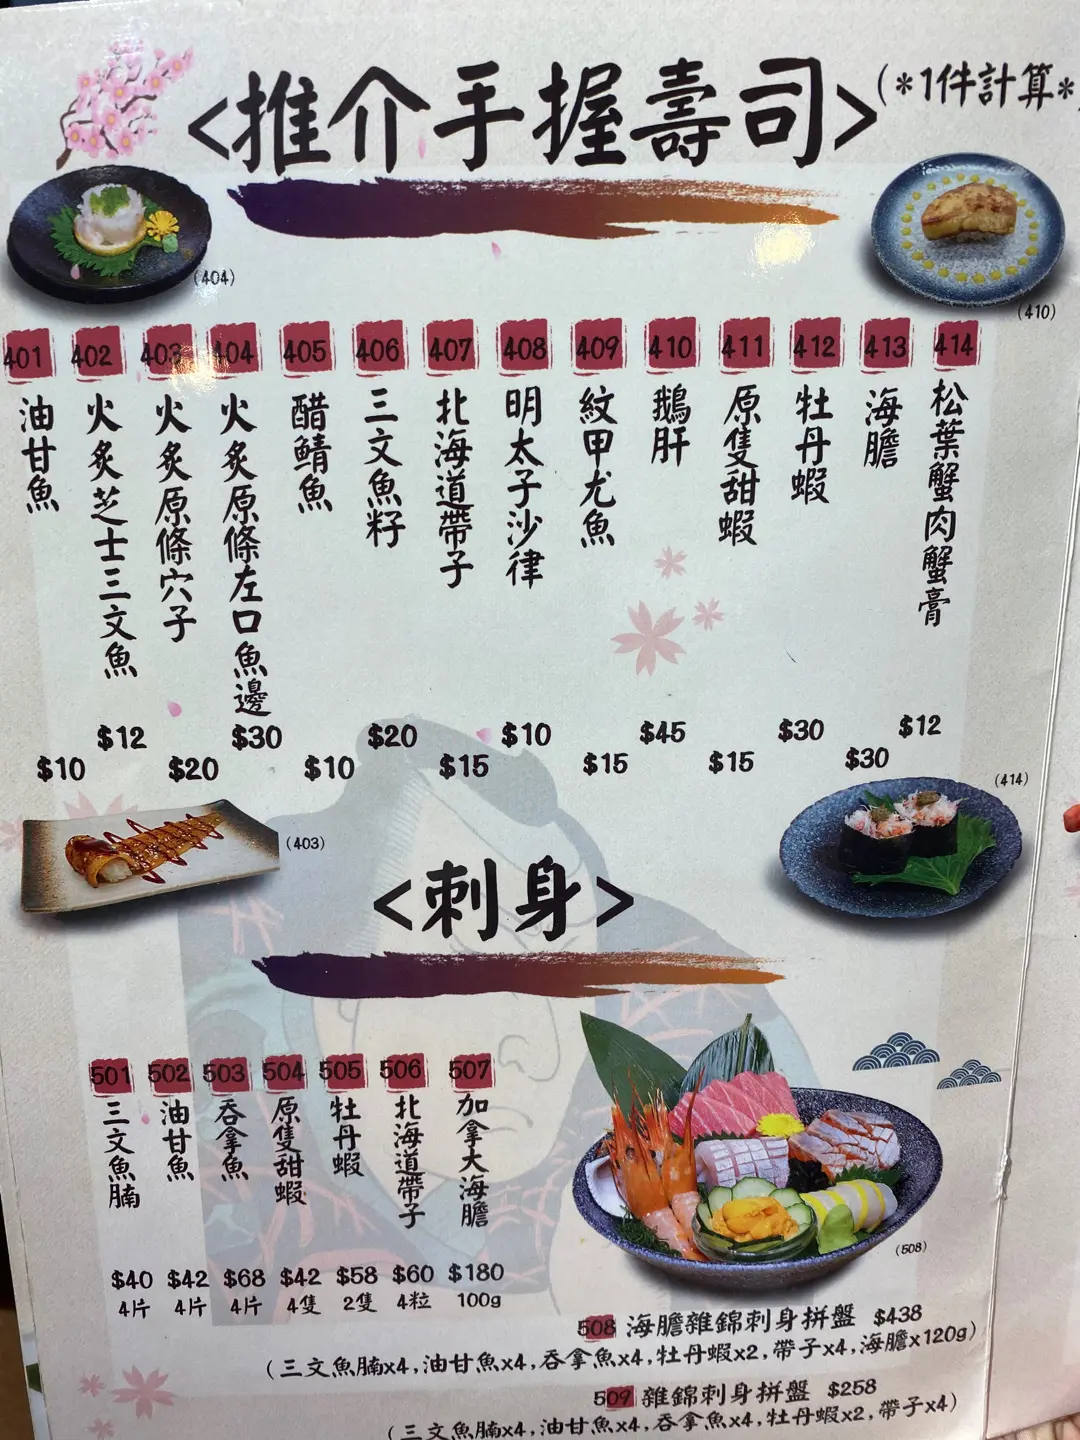 <推介手握壽司>(*1件計算*)
(404)
(410)
401 油甘魚 $10
402 火炙芝士三文魚 $12
403 火炙原條穴子 $20
404 火炙原條左口魚邊 $30
405 醋鯖魚 $10
406 三文魚籽 $20
407 北海道帶子 $15
408 明太子沙律 $10
409 紋甲尤魚 $15
410 鵝肝 $45
411 原隻甜蝦 $15
412 牡丹蝦 $30
413 海膽 $30
414 松葉蟹肉蟹膏 $12
(403)
(414)
<刺身>
501 三文魚腩 $40 4片
502 油甘魚 $42 4片
503 吞拿魚 $68 4片
504 原隻甜蝦 $42 4隻
505 牡丹蝦 $58 2隻
506 北海道帶子 $60 4粒
507 加拿大海膽 $180 100g
(508)
508 海膽雜錦刺身拼盤 $438
(三文魚腩x4,油甘魚x4,吞拿魚x4,牡丹蝦x2,帶子x4,海膽x120g)
509 雜錦刺身拼盤 $258
(三文魚腩x4,油甘魚x4,吞拿魚x4,牡丹蝦x2,帶子x4)